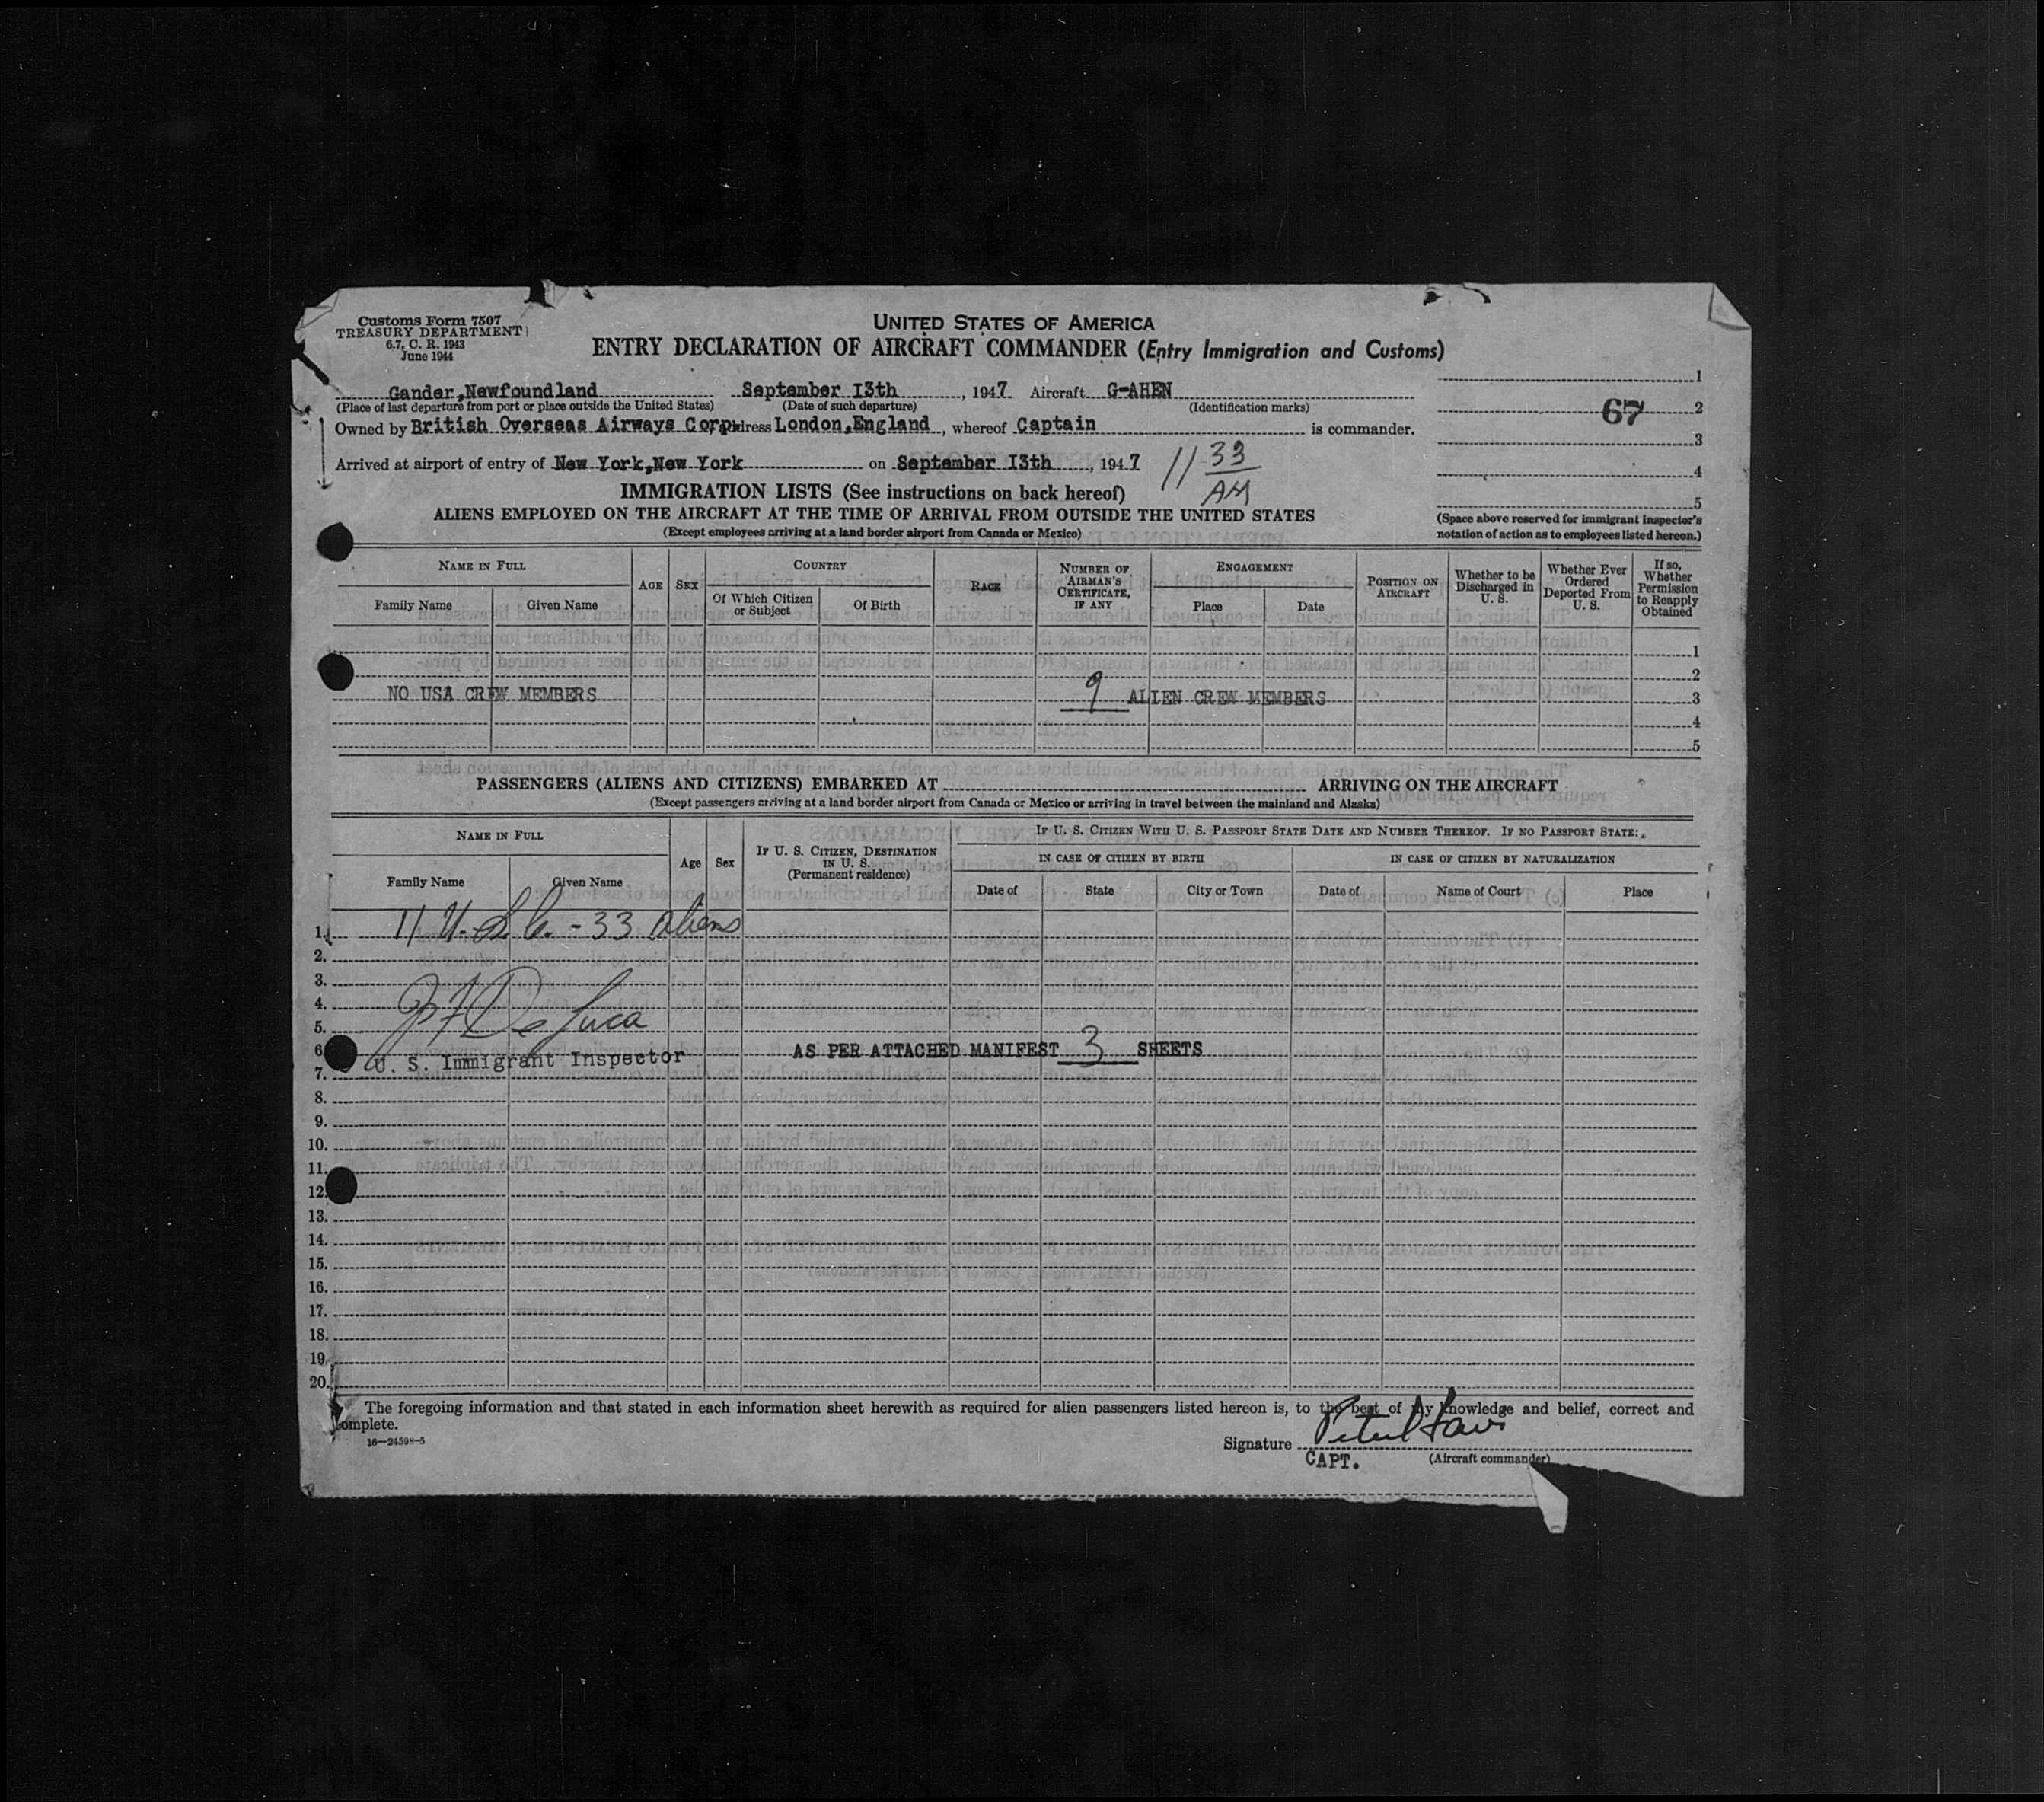 Customs Form 7507
TREASURY DEPARTMENT
6.7, C. R. 1943
June 1944
UNITED STATES OF AMERICA
ENTRY DECLARATION OF AIRCRAFT COMMANDER (Entry Immigration and Customs)
Gander,Newfoundland September I3th, 1947 Aircraft G-AHEN
(Place of last departure from port or place outside the United States) (Date of such departure) (Identification marks)
Owned by British Overseas Airways Corp. London,England, whereof Captain is commander.
Arrived at airport of entry of New York,New York on September I3th, 1947 11 33 AM
1
2
67
3
4
5
(Space above reserved for immigrant inspector's notation of action as to employees listed hereon.)
IMMIGRATION LISTS (See instructions on back hereof)
ALIENS EMPLOYED ON THE AIRCRAFT AT THE TIME OF ARRIVAL FROM OUTSIDE THE UNITED STATES
(Except employees arriving at a land border airport from Canada or Mexico)
NAME IN FULL
Family Name Given Name
AGE SEX
COUNTRY
Of Which Citizen or Subject Of Birth
RACE
NUMBER OF AIRMAN'S CERTIFICATE, IF ANY
ENGAGEMENT
Place Date
POSITION ON AIRCRAFT
Whether to be Discharged in U. S.
Whether Ever Ordered Deported From U. S.
If so, Whether Permission to Reapply Obtained
1
2
NO USA CREW MEMBERS 9 ALIEN CREW MEMBERS 3
4
5
PASSENGERS (ALIENS AND CITIZENS) EMBARKED AT ARRIVING ON THE AIRCRAFT
(Except passengers arriving at a land border airport from Canada or Mexico or arriving in travel between the mainland and Alaska)
NAME IN FULL
Family Name Given Name
Age Sex
IF U. S. CITIZEN, DESTINATION IN U. S.
(Permanent residence)
IF U. S. CITIZEN WITH U. S. PASSPORT STATE DATE AND NUMBER THEREOF. IF NO PASSPORT STATE:
IN CASE OF CITIZEN BY BIRTH IN CASE OF CITIZEN BY NATURALIZATION
Date of State City or Town Date of Name of Court Place
1. 11 U.S.C. - 33 aliens
2.
3.
4. De Luca
5.
6. U. S. Immigrant Inspector AS PER ATTACHED MANIFEST 3 SHEETS
7.
8.
9.
10.
11.
12.
13.
14.
15.
16.
17.
18.
19.
20.
The foregoing information and that stated in each information sheet herewith as required for alien passengers listed hereon is, to the best of my knowledge and belief, correct and
complete.
16—24598-5
Signature
CAPT. (Aircraft commander)